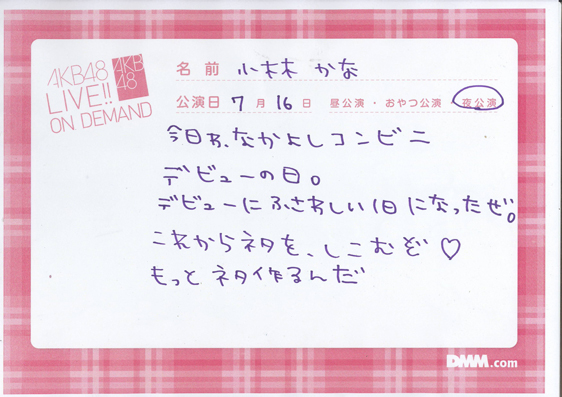 AKB48
LIVE!!
ON DEMAND
AKB
48
名前 小林 かな
公演日 7月16日 昼公演・おやつ公演・夜公演
今日わ、なかよしコンビニ
デビューの日。
デビューにふさわしい1日になったぜ。
これからネタを、しこむぞ♡
もっと ネタ作るんだ
DMM.com